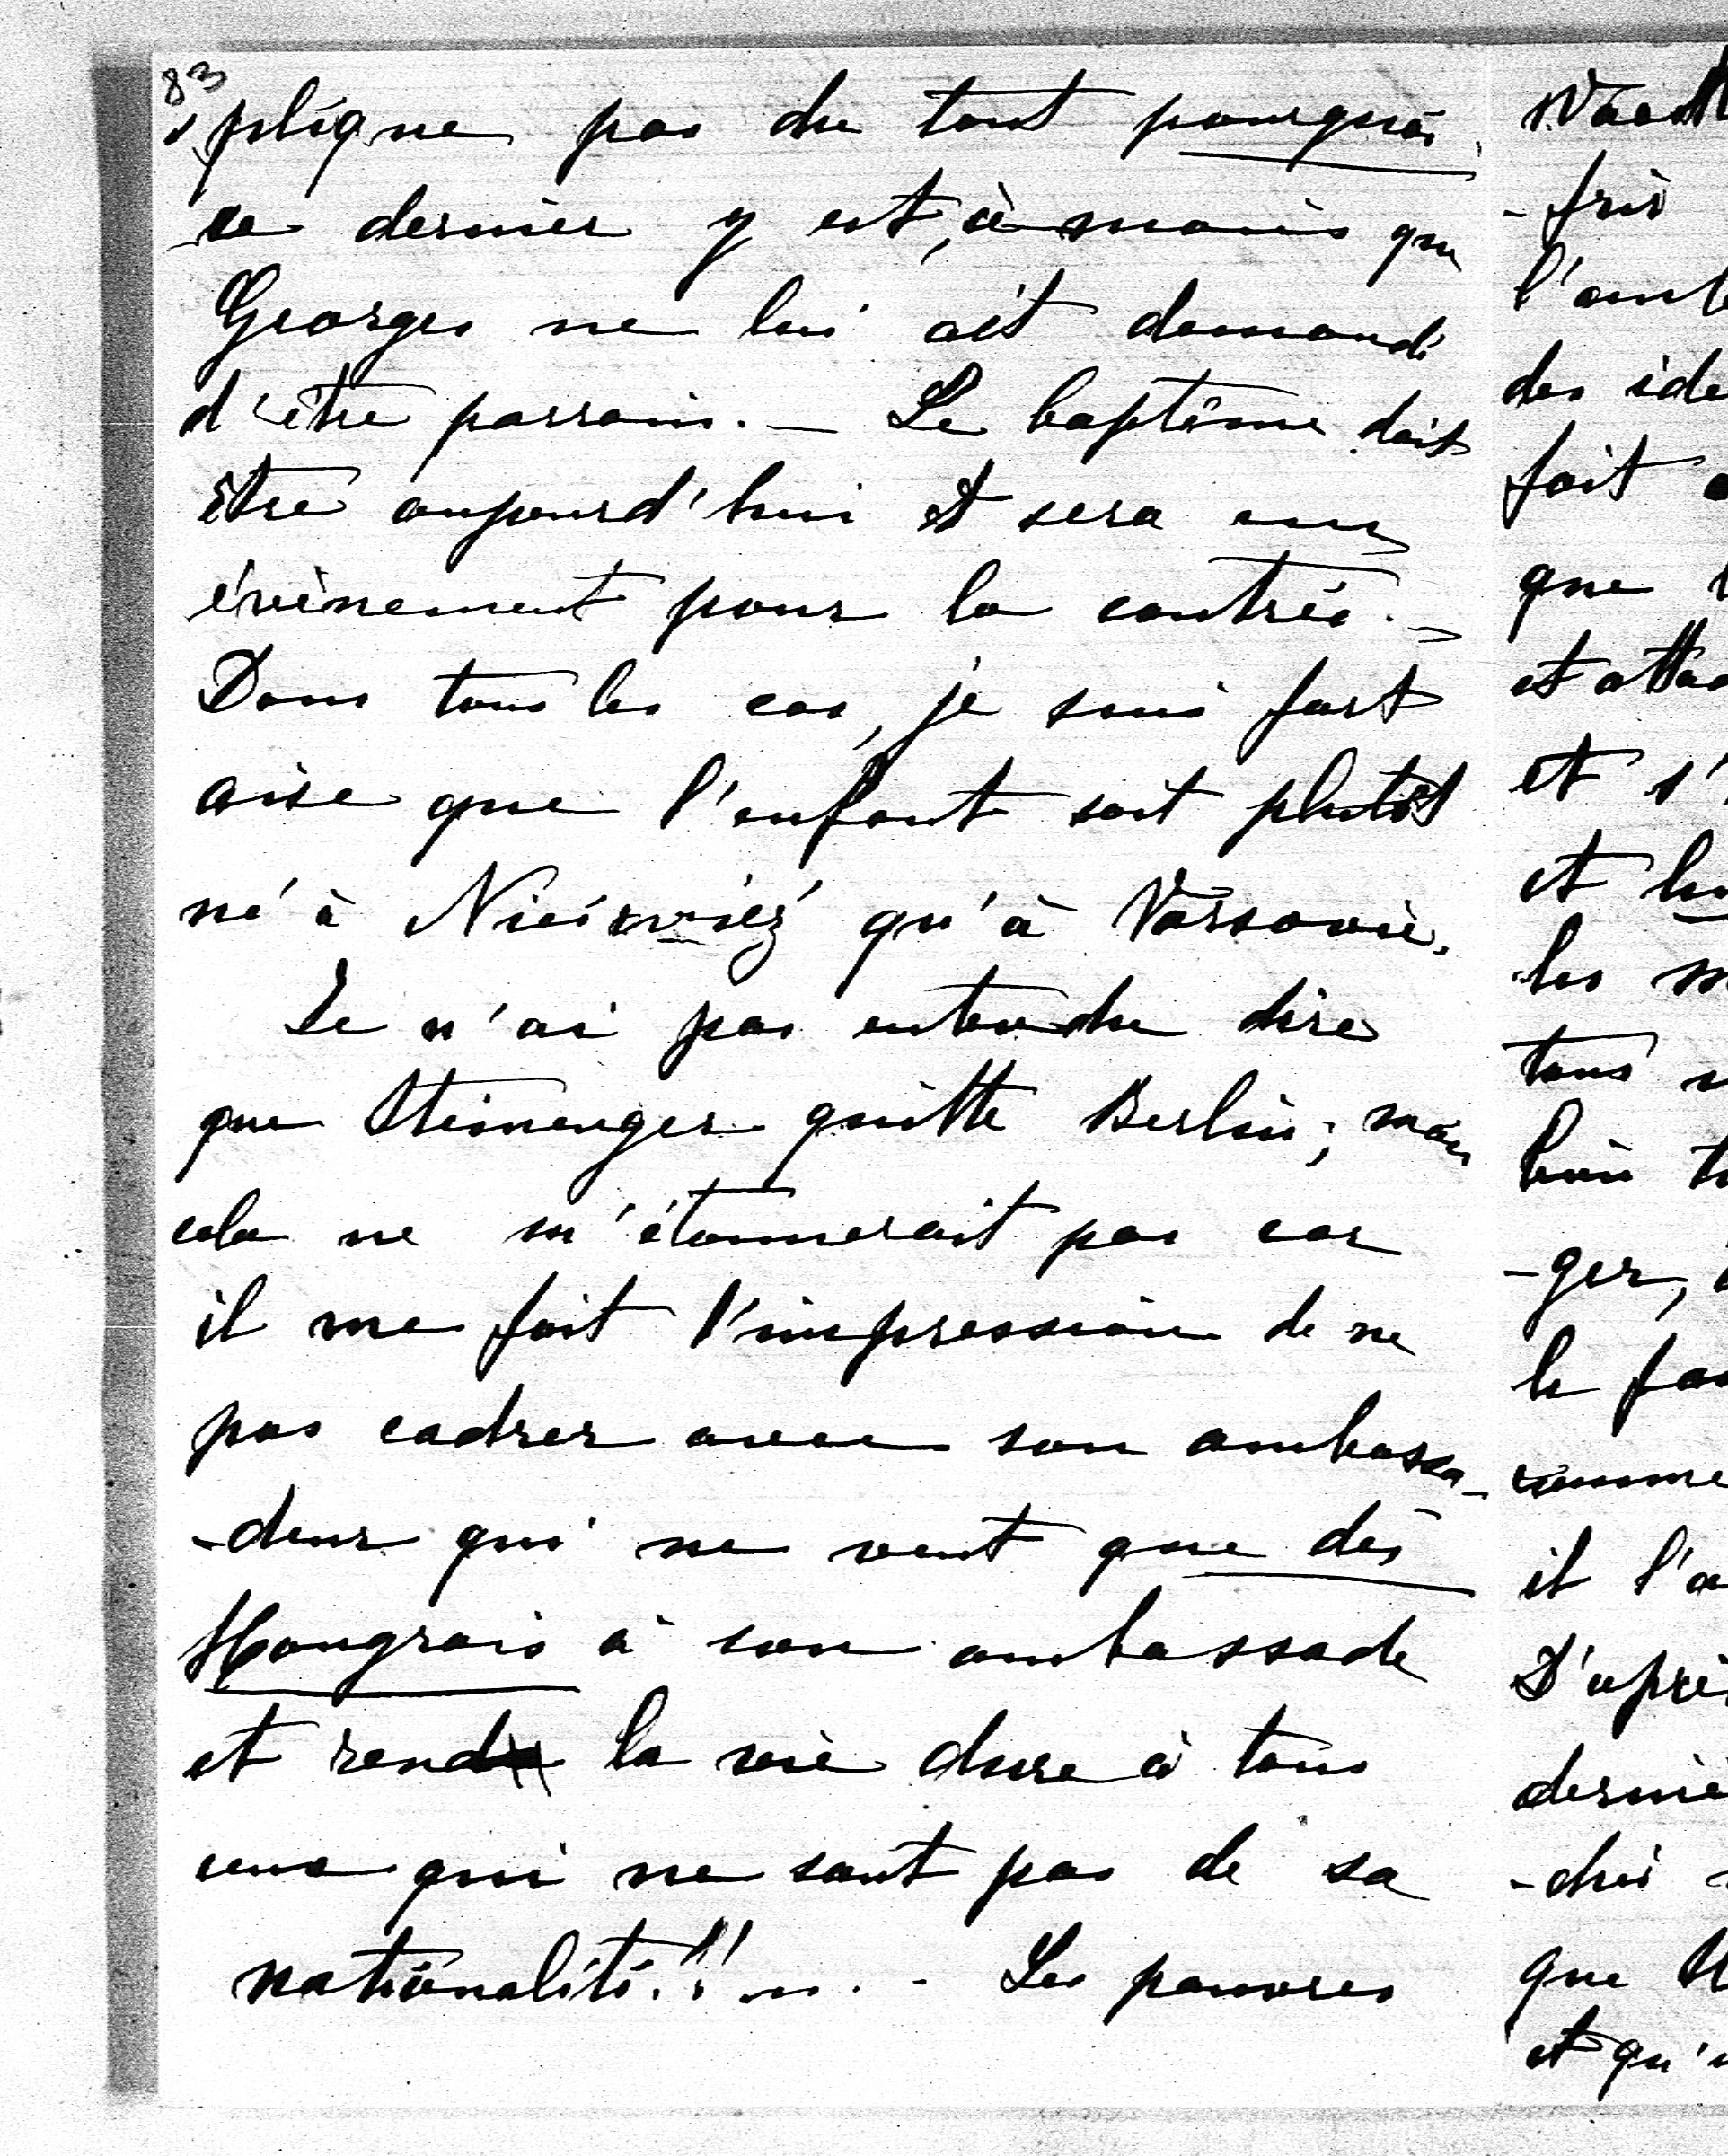 83
xplique pas du tout pourquoi
ce dernier y est, à moins que
Georges ne lui ait demandé
d'être parrain. — Le baptême doit
être aujourd'hui et sera un
évènement pour la contrée. —
Dans tous les cas, je suis fort
aise que l'enfant soit plutôt
né à Nieświéź qu'à Varsovie.
Je n'ai pas entendu dire
que Steinenger quitte Berlin; mais
cela ne m'étonnerait pas car
il me fait l'impression de ne
pas cadrer avec son ambassa-
-deur qui ne veut que des
Hongrois à son ambassade
et rend la vie dure à tous
ceux qui ne sont pas de sa
nationalité!!... - Les pauvres
-fris
l'amb
des ide
fait
que
et attac
et s'
et lu
les m
tous
bien t
-ger,
le fa
comme
il l'a
D'aprè
derniè
-dres
que
et qu'